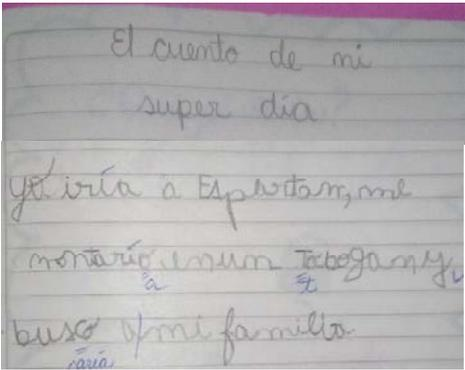 El cuento de mi
super día
yó iría a Espartam, me
montarío enun Tobogan y
a t
busco a mi familia
caria